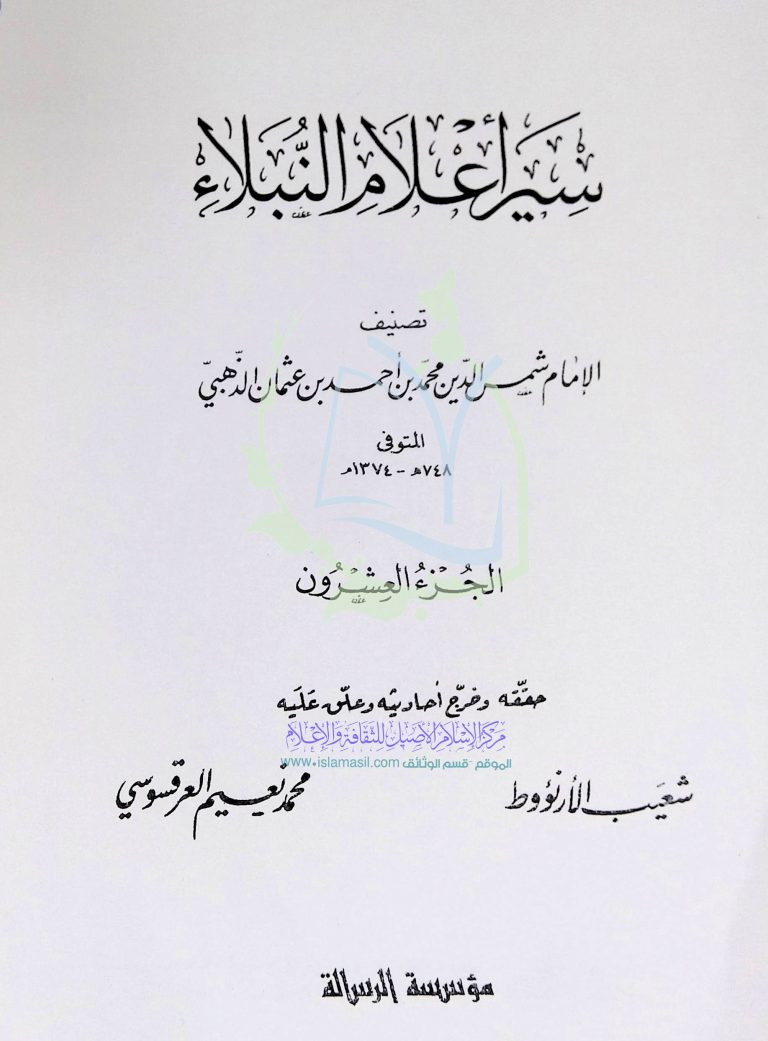 سِيَر أَعْلَامِ النُّبَلَاءِ
تصنيف
الإمام شمس الدّين محمّد بن أحمد بن عثمان الذّهبيّ
المتوفى
٧٤٨هـ - ١٣٧٤م
الجُزْءُ العِشْرُون
حقّقه وخرّج أحاديثه وعلّق عَلَيه
مركز الإسلام الأصيل للثقافة والإعلام
الموقع -قسم الوثائق www.islamasil.com
شعَيب الأرنؤوط
محمد نعيم العرقسوسي
مؤسسة الرسالة